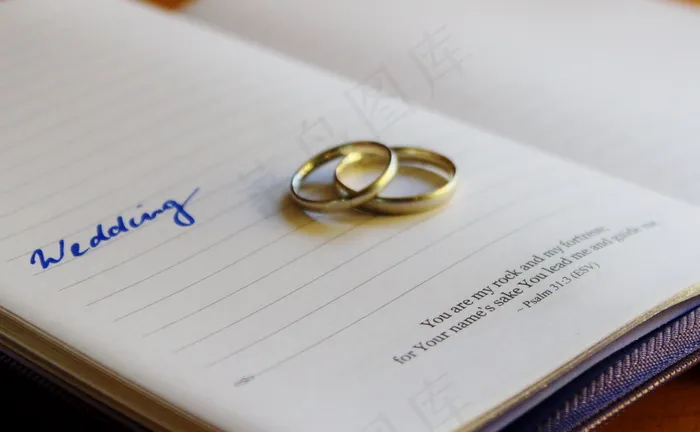 Wedding
You are my rock and my fortress;
for Your name's sake You lead me and guide me
~ Psalm 31:3 (ESV)